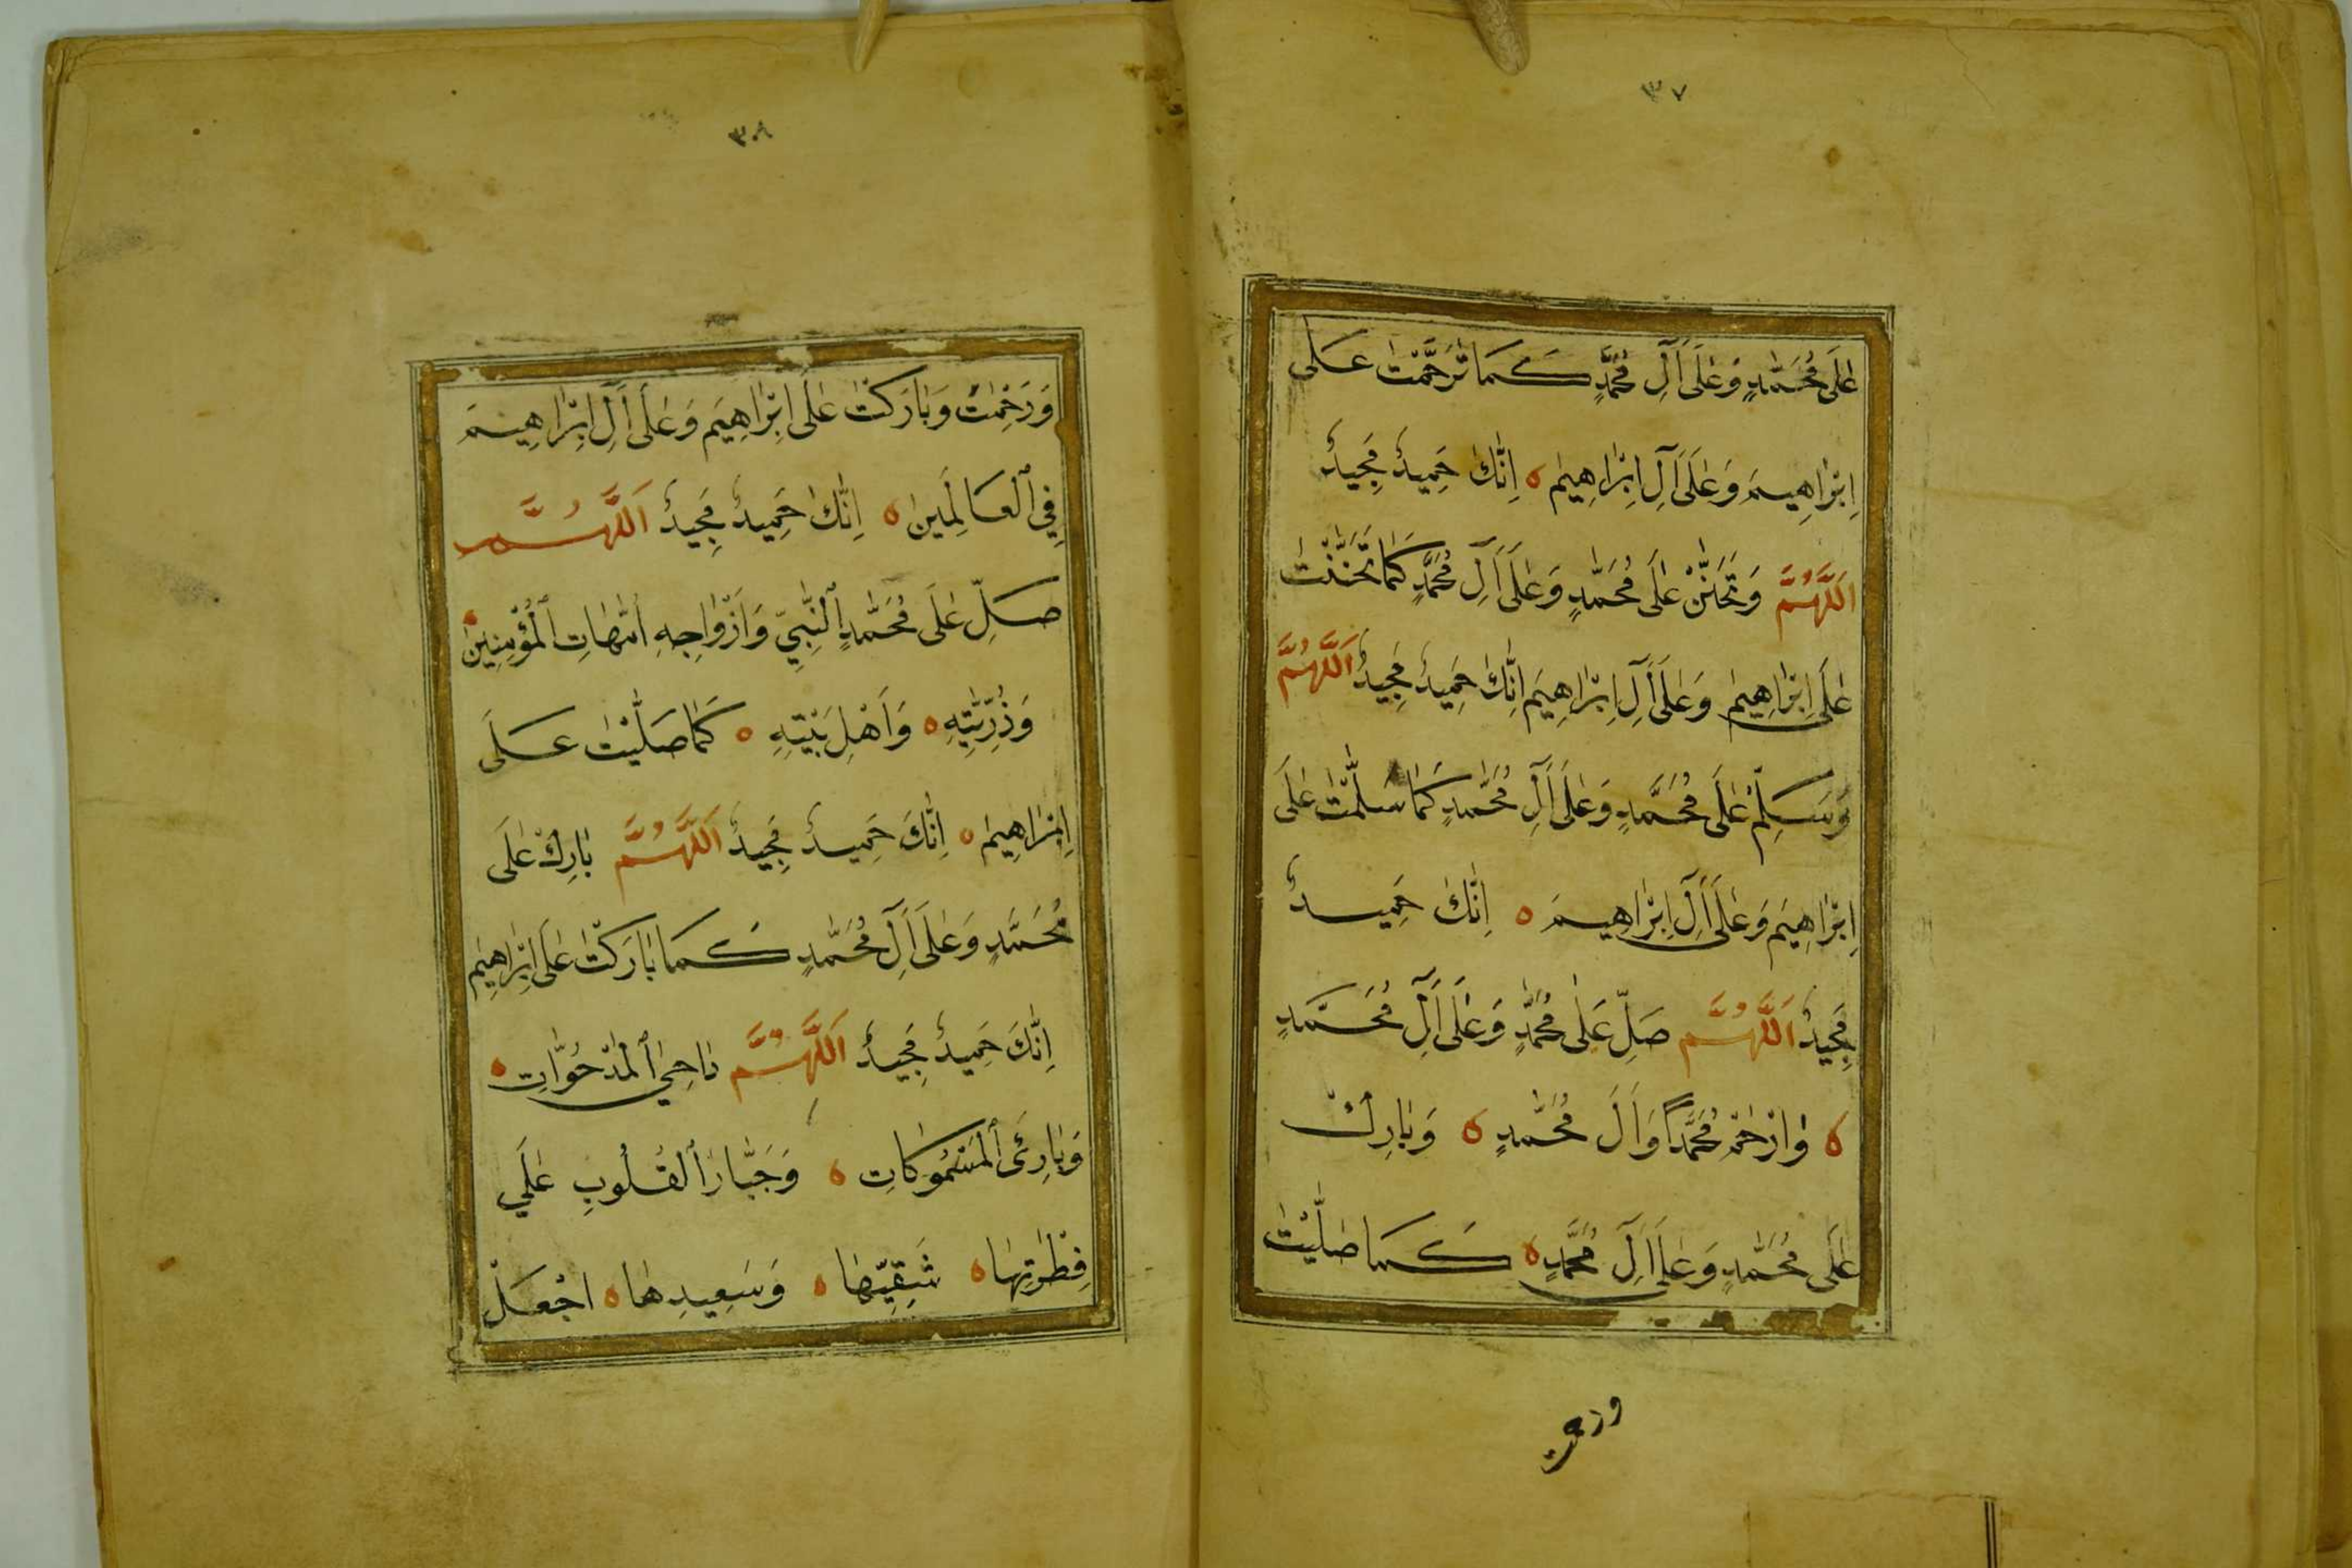 ٣٧
عَلَى مُحَمَّدٍ وَعَلَى آلِ مُحَمَّدٍ كَمَا تَرَحَّمْتَ عَلَى
اِبْرَاهِيمَ وَعَلَى آلِ اِبْرَاهِيمَ ه اِنَّكَ حَمِيدٌ مَجِيدٌ
اَللَّهُمَّ وَتَحَنَّنْ عَلَى مُحَمَّدٍ وَعَلَى آلِ مُحَمَّدٍ كَمَا تَحَنَّنْتَ
عَلَى اِبْرَاهِيمَ وَعَلَى آلِ اِبْرَاهِيمَ اِنَّكَ حَمِيدٌ مَجِيدٌ اَللَّهُمَّ
وَسَلِّمْ عَلَى مُحَمَّدٍ وَعَلَى آلِ مُحَمَّدٍ كَمَا سَلَّمْتَ عَلَى
اِبْرَاهِيمَ وَعَلَى آلِ اِبْرَاهِيمَ ه اِنَّكَ حَمِيدٌ
مَجِيدٌ اَللَّهُمَّ صَلِّ عَلَى مُحَمَّدٍ وَعَلَى آلِ مُحَمَّدٍ
ه وَارْحَمْ مُحَمَّدًا وَآلَ مُحَمَّدٍ ه وَبَارِكْ
عَلَى مُحَمَّدٍ وَعَلَى آلِ مُحَمَّدٍ ه كَمَا صَلَّيْتَ
ورحمت
٣٠٨
وَرَحِمْتَ وَبَارَكْتَ عَلَى اِبْرَاهِيمَ وَعَلَى آلِ اِبْرَاهِيمَ
فِي ٱلْعَالَمِينَ ه اِنَّكَ حَمِيدٌ مَجِيدٌ اَللَّهُمَّ
صَلِّ عَلَى مُحَمَّدٍ ٱلنَّبِيِّ وَاَزْوَاجِهِ اُمَّهَاتِ ٱلْمُؤْمِنِينَ ه
وَذُرِّيَّتِهِ ه وَاَهْلِ بَيْتِهِ ه كَمَا صَلَّيْتَ عَلَى
اِبْرَاهِيمَ ه اِنَّكَ حَمِيدٌ مَجِيدٌ اَللَّهُمَّ بَارِكْ عَلَى
مُحَمَّدٍ وَعَلَى آلِ مُحَمَّدٍ كَمَا بَارَكْتَ عَلَى اِبْرَاهِيمَ
اِنَّكَ حَمِيدٌ مَجِيدٌ اَللَّهُمَّ دَاحِيَ ٱلْمَدْحُوَّاتِ ه
وَبَارِئَ ٱلْمَسْمُوكَاتِ ه وَجَبَّارَ ٱلْقُلُوبِ عَلَى
فِطْرَتِهَا ه شَقِيِّهَا ه وَسَعِيدِهَا ه اجْعَلْ